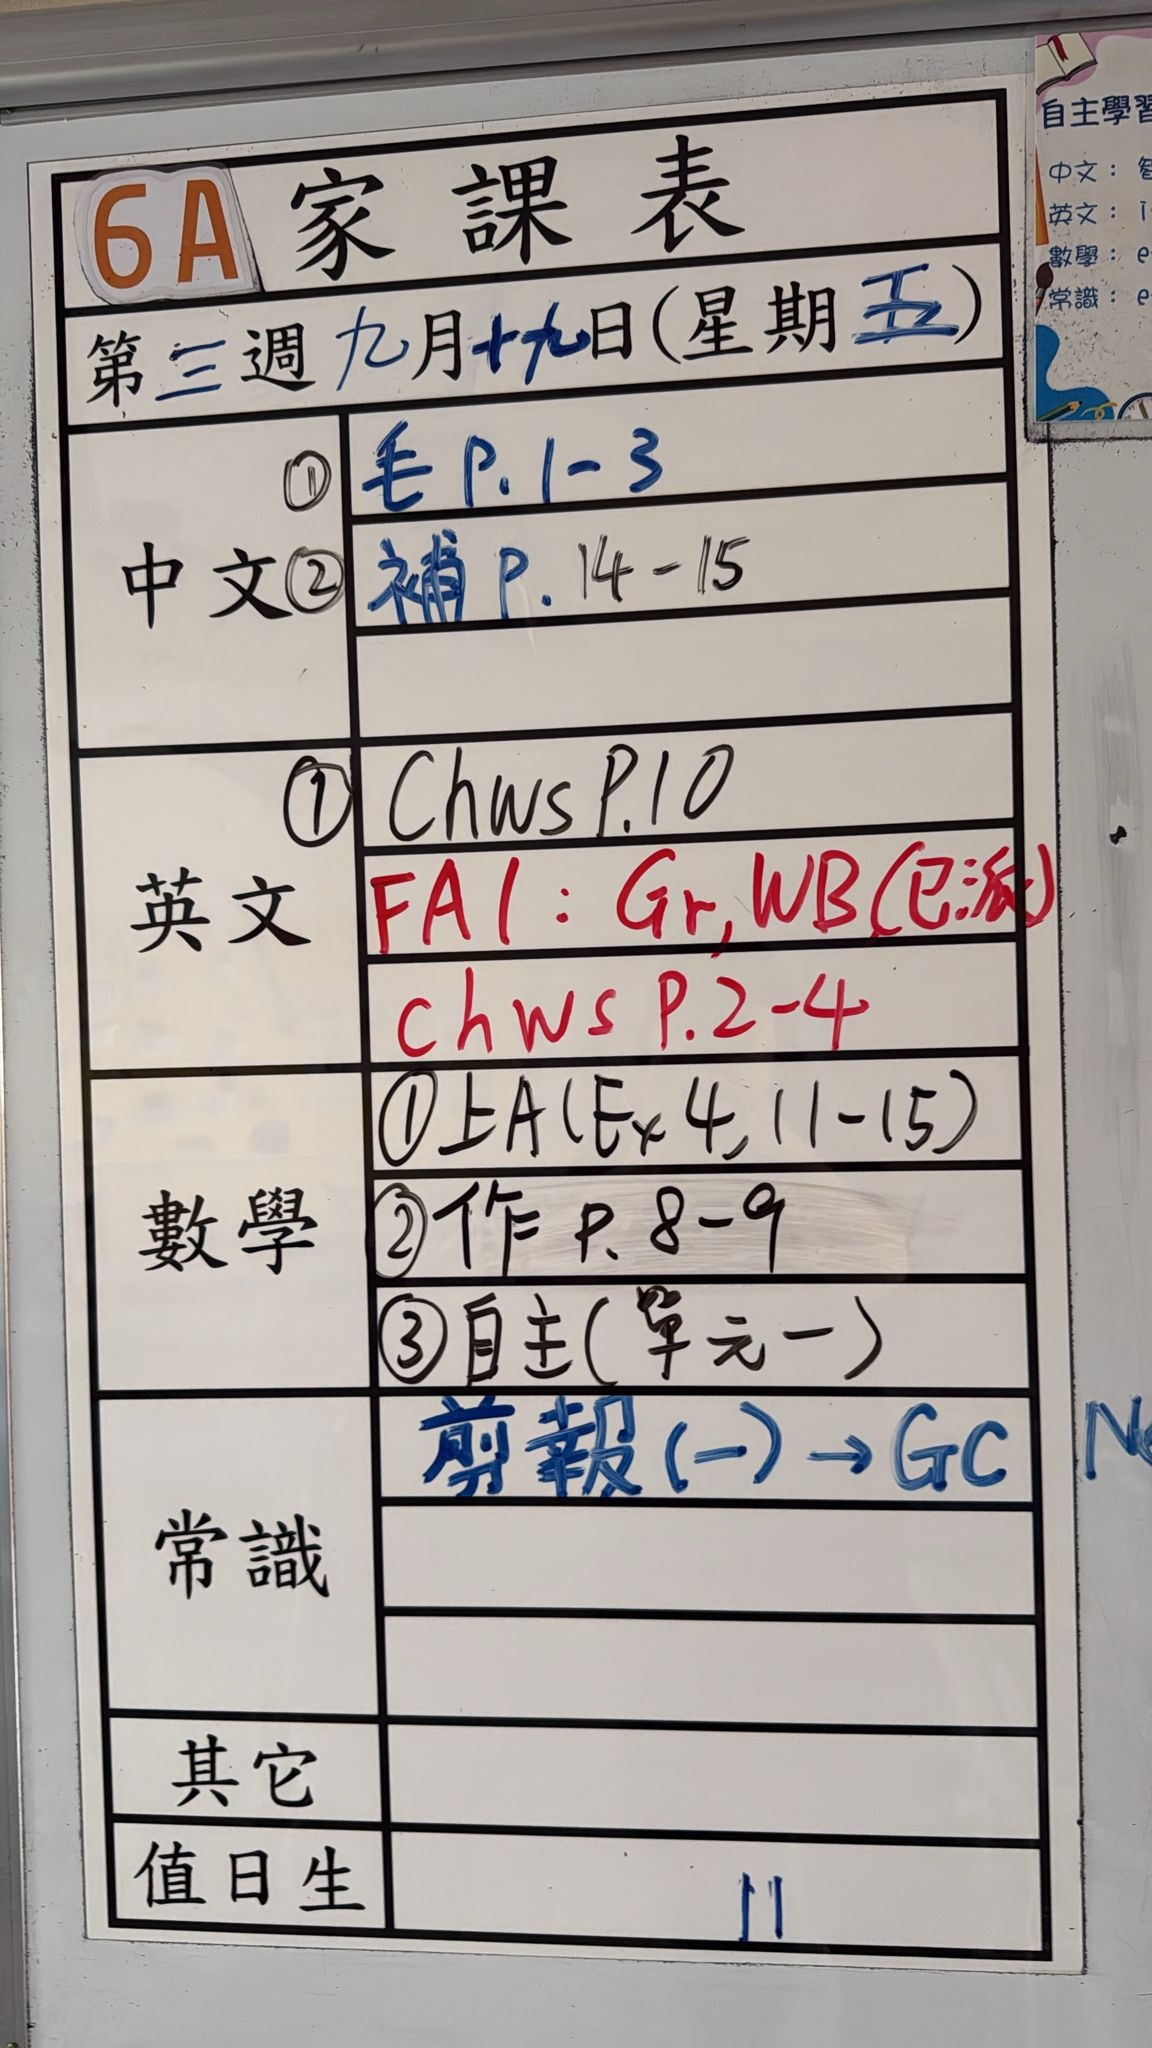 6A 家課表
第三週 九月十九日(星期五)
中文
① 毛 P. 1-3
② 補 P. 14-15
英文
① Chws P.10
FA1: Gr, WB (已派)
chws P.2-4
數學
① 上A(Ex 4, 11-15)
② 作 P. 8-9
③ 自主(單元一)
常識
剪報(一)→GC
其它
值日生
11
自主學習
中文：
英文：
數學：
常識：